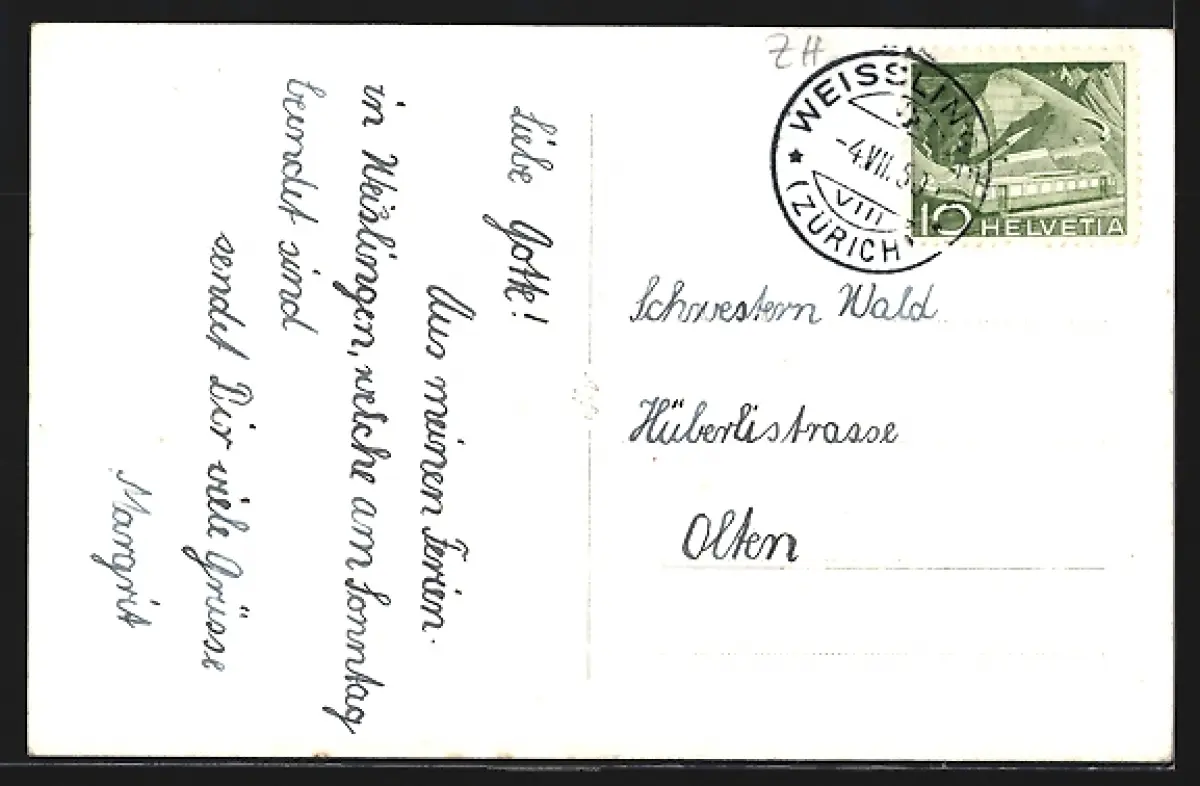 Liebe Gotte!
Aus meinen Ferien.
in Weislingen, welche am Sonntag
beendet sind
sendet Dir viele Grüsse
Margrit
ZH
WEISSLINGEN
-4.VII.50
VIII
(ZÜRICH)
10 HELVETIA
Schwestern Wald
Hüberlistrasse
Olten